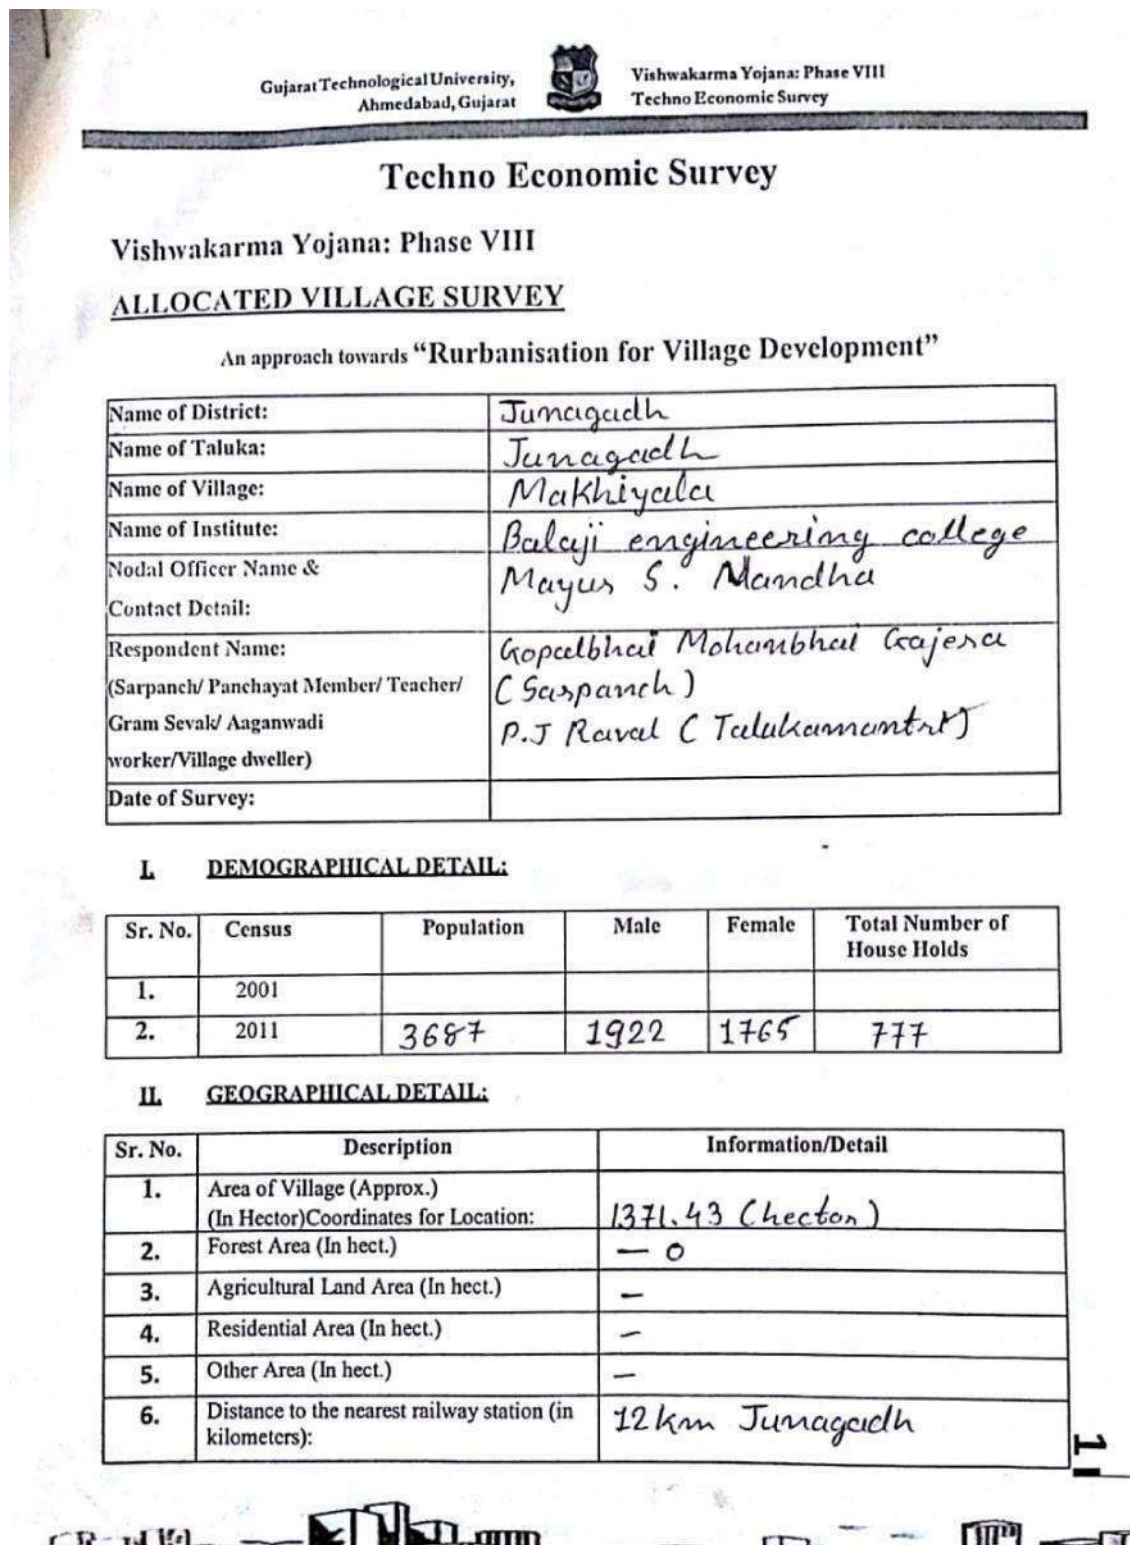 Gujarat Technological University,
Ahmedabad, Gujarat
Vishwakarma Yojana: Phase VIII
Techno Economic Survey
Techno Economic Survey
Vishwakarma Yojana: Phase VIII
ALLOCATED VILLAGE SURVEY
An approach towards “Rurbanisation for Village Development”
Name of District: Junagadh
Name of Taluka: Junagadh
Name of Village: Makhiyala
Name of Institute: Balaji engineering college
Nodal Officer Name & Mayur S. Mandha
Contact Detail:
Respondent Name: Gopalbhai Mohanbhai Gajera
(Sarpanch/ Panchayat Member/ Teacher/ (Sarpanch)
Gram Sevak/ Aaganwadi P.J Raval (Talukamantri)
worker/Village dweller)
Date of Survey:
I. DEMOGRAPHICAL DETAIL:
Sr. No. Census Population Male Female Total Number of
House Holds
1. 2001
2. 2011 3687 1922 1765 777
II. GEOGRAPHICAL DETAIL:
Sr. No. Description Information/Detail
1. Area of Village (Approx.)
(In Hector)Coordinates for Location: 1371.43 (hector)
2. Forest Area (In hect.) — 0
3. Agricultural Land Area (In hect.) —
4. Residential Area (In hect.) —
5. Other Area (In hect.) —
6. Distance to the nearest railway station (in 12 km Junagadh
kilometers):
1